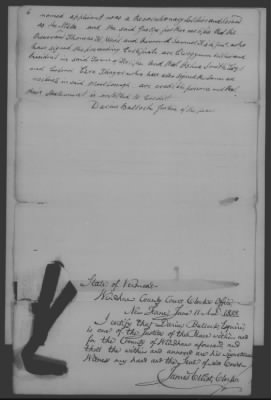 named applicant was a Revolutionary soldier and served
as he states. and the said Justice further certifies that the
Reverend Thomas H. Wood and Samuel
have signed the foregoing Certificate are Clergymen
resident in said Town of Halifax and that
and Ezra who have also signed the same and
reside in said Marlborough are credible persons and that
their statement is entitled to Credit
Darius Bullock Justice of the peace
State of Vermont
Windham County Court Clerks Office
New Fane June 11 A.D. 1833.
I certify that Darius Bullock Esquire
is one of the Justices of the Peace within and
for the County of Windham aforesaid and
that the within and annexed are his signatures
Witness my hand and the Seal of said Court
James Elliot, Clerk